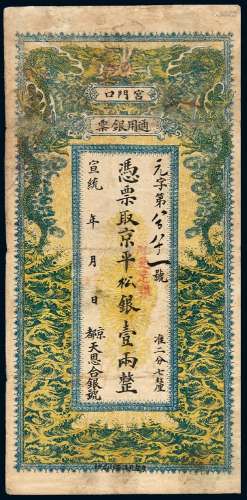 宮門口
通用銀票
元字第
號
准二分七厘
憑票取京平松銀壹兩整
宣統 年 月 日
京都天恩合銀號